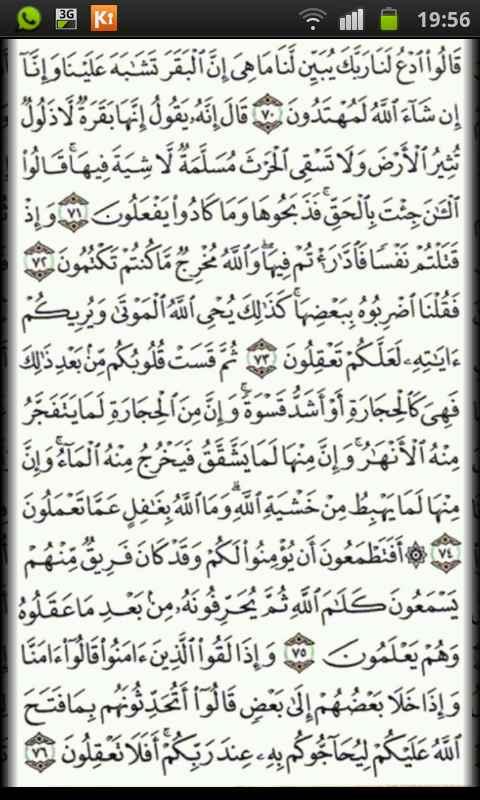 3G K↑ 19:56
قَالُوا۟ ٱدْعُ لَنَا رَبَّكَ يُبَيِّن لَّنَا مَا هِىَ إِنَّ ٱلْبَقَرَ تَشَٰبَهَ عَلَيْنَا وَإِنَّآ
إِن شَآءَ ٱللَّهُ لَمُهْتَدُونَ ٧٠ قَالَ إِنَّهُۥ يَقُولُ إِنَّهَا بَقَرَةٌ لَّا ذَلُولٌ
تُثِيرُ ٱلْأَرْضَ وَلَا تَسْقِى ٱلْحَرْثَ مُسَلَّمَةٌ لَّا شِيَةَ فِيهَا ۚ قَالُوا۟
ٱلْـَٰٔنَ جِئْتَ بِٱلْحَقِّ ۚ فَذَبَحُوهَا وَمَا كَادُوا۟ يَفْعَلُونَ ٧١ وَإِذْ
قَتَلْتُمْ نَفْسًا فَٱدَّٰرَْٰٔتُمْ فِيهَا ۖ وَٱللَّهُ مُخْرِجٌ مَّا كُنتُمْ تَكْتُمُونَ ٧٢
فَقُلْنَا ٱضْرِبُوهُ بِبَعْضِهَا ۚ كَذَٰلِكَ يُحْىِ ٱللَّهُ ٱلْمَوْتَىٰ وَيُرِيكُمْ
ءَايَٰتِهِۦ لَعَلَّكُمْ تَعْقِلُونَ ٧٣ ثُمَّ قَسَتْ قُلُوبُكُم مِّنۢ بَعْدِ ذَٰلِكَ
فَهِىَ كَٱلْحِجَارَةِ أَوْ أَشَدُّ قَسْوَةً ۚ وَإِنَّ مِنَ ٱلْحِجَارَةِ لَمَا يَتَفَجَّرُ
مِنْهُ ٱلْأَنْهَٰرُ ۚ وَإِنَّ مِنْهَا لَمَا يَشَّقَّقُ فَيَخْرُجُ مِنْهُ ٱلْمَآءُ ۚ وَإِنَّ
مِنْهَا لَمَا يَهْبِطُ مِنْ خَشْيَةِ ٱللَّهِ ۗ وَمَا ٱللَّهُ بِغَٰفِلٍ عَمَّا تَعْمَلُونَ
٧٤ ۞ أَفَتَطْمَعُونَ أَن يُؤْمِنُوا۟ لَكُمْ وَقَدْ كَانَ فَرِيقٌ مِّنْهُمْ
يَسْمَعُونَ كَلَٰمَ ٱللَّهِ ثُمَّ يُحَرِّفُونَهُۥ مِنۢ بَعْدِ مَا عَقَلُوهُ
وَهُمْ يَعْلَمُونَ ٧٥ وَإِذَا لَقُوا۟ ٱلَّذِينَ ءَامَنُوا۟ قَالُوٓا۟ ءَامَنَّا
وَإِذَا خَلَا بَعْضُهُمْ إِلَىٰ بَعْضٍ قَالُوٓا۟ أَتُحَدِّثُونَهُم بِمَا فَتَحَ
ٱللَّهُ عَلَيْكُمْ لِيُحَآجُّوكُم بِهِۦ عِندَ رَبِّكُمْ ۚ أَفَلَا تَعْقِلُونَ ٧٦